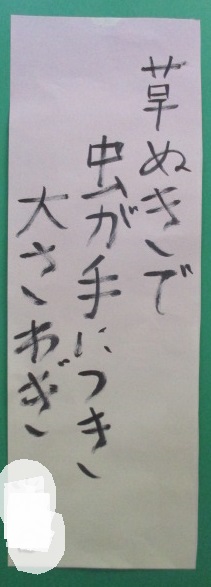 草ぬきで
虫が手につき
大さわぎ